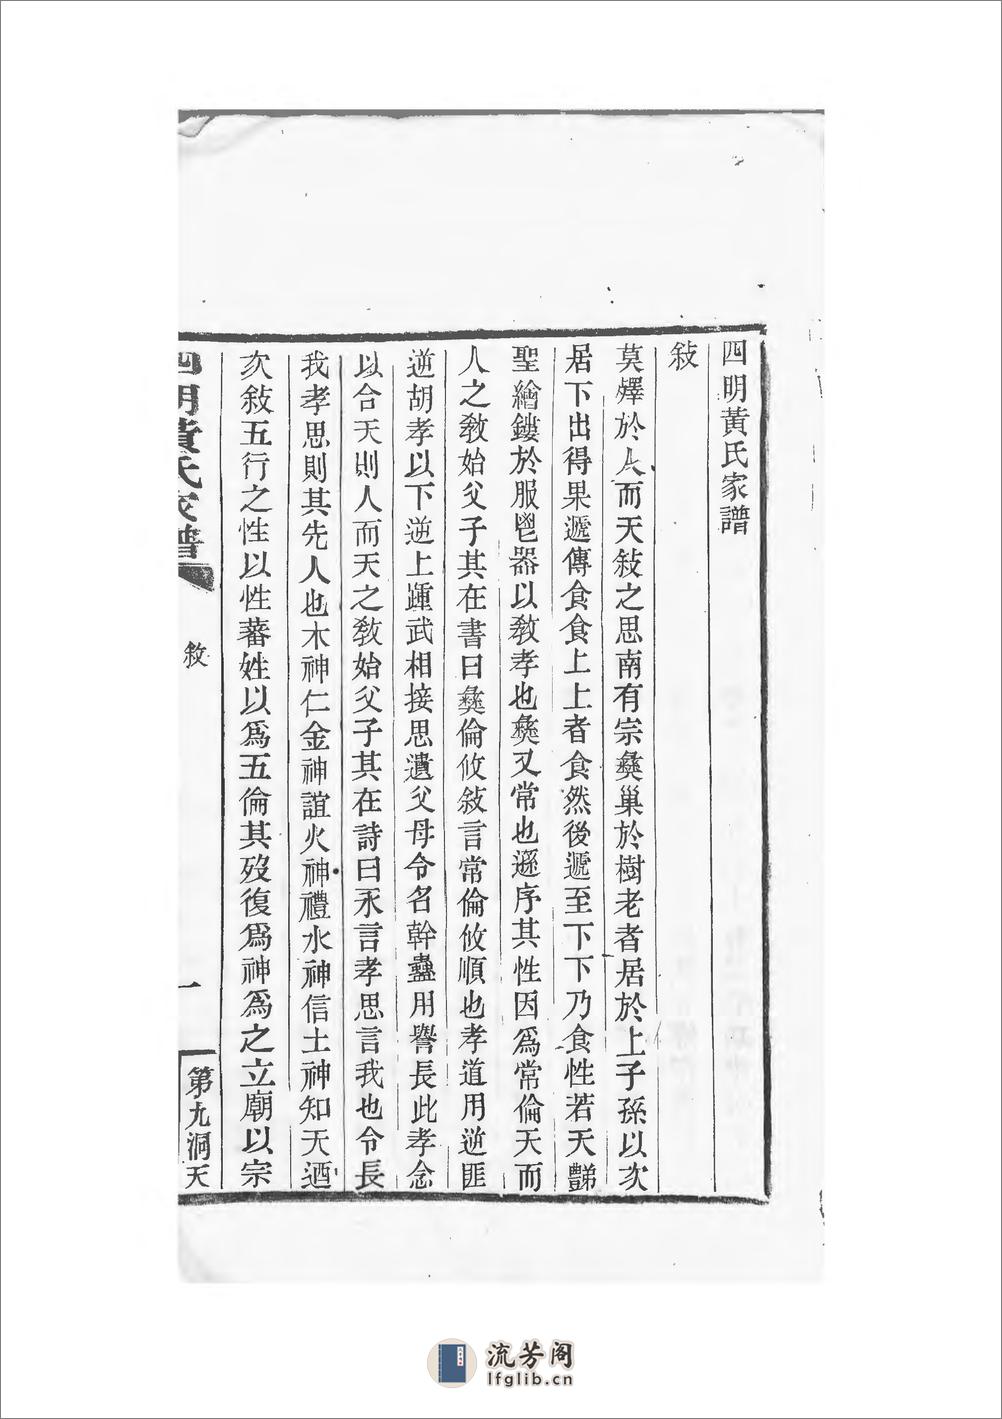 四明黃氏家譜
敍
莫嬕於人而天敍之思南有宗彝巢於樹老者居於上子孫以次
居下出得果遞傳食食上上者食然後遞至下下乃食性若天豔
聖繪鏤於服鬯器以敎孝也彝又常也遜序其性因爲常倫天而
人之敎始父子其在書曰彝倫攸敍言常倫攸順也孝道用逆匪
逆胡孝以下逆上踵武相接思遺父母令名幹蠱用譽長此孝念
以合天則人而天之敎始父子其在詩曰永言孝思言我也令長
我孝思則其先人也木神仁金神誼火神禮水神信土神知天迺
次敍五行之性以性蕃姓以爲五倫其歿復爲神爲之立廟以宗
四明黃氏家譜
敘
一
第九洞天
流芳阁
lfglib.cn